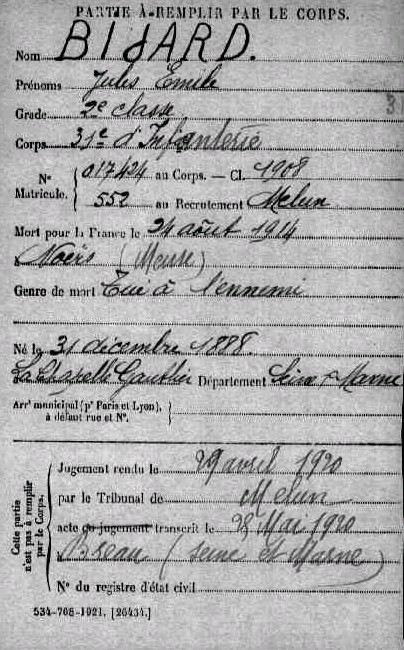 PARTIE À REMPLIR PAR LE CORPS.
Nom BIJARD.
Prénoms Jules Émile
Grade 2e classe
Corps 31e d'Infanterie
N° Matricule. 017424 au Corps. — Cl. 1908
552 au Recrutement Melun
Mort pour la France le 24 août 1914
à Noërs (Meuse)
Genre de mort Tué à l'ennemi
Né le 31 décembre 1888.
à La Chapelle Gauthier Département Seine & Marne
Arrt municipal (pr Paris et Lyon),
à défaut rue et N°.
Cette partie
n'est pas à remplir
par le Corps.
Jugement rendu le 29 avril 1920
par le Tribunal de Melun
acte du jugement transcrit le 28 Mai 1920
Bréau (Seine et Marne)
N° du registre d'état civil
534-708-1921. [26434.]